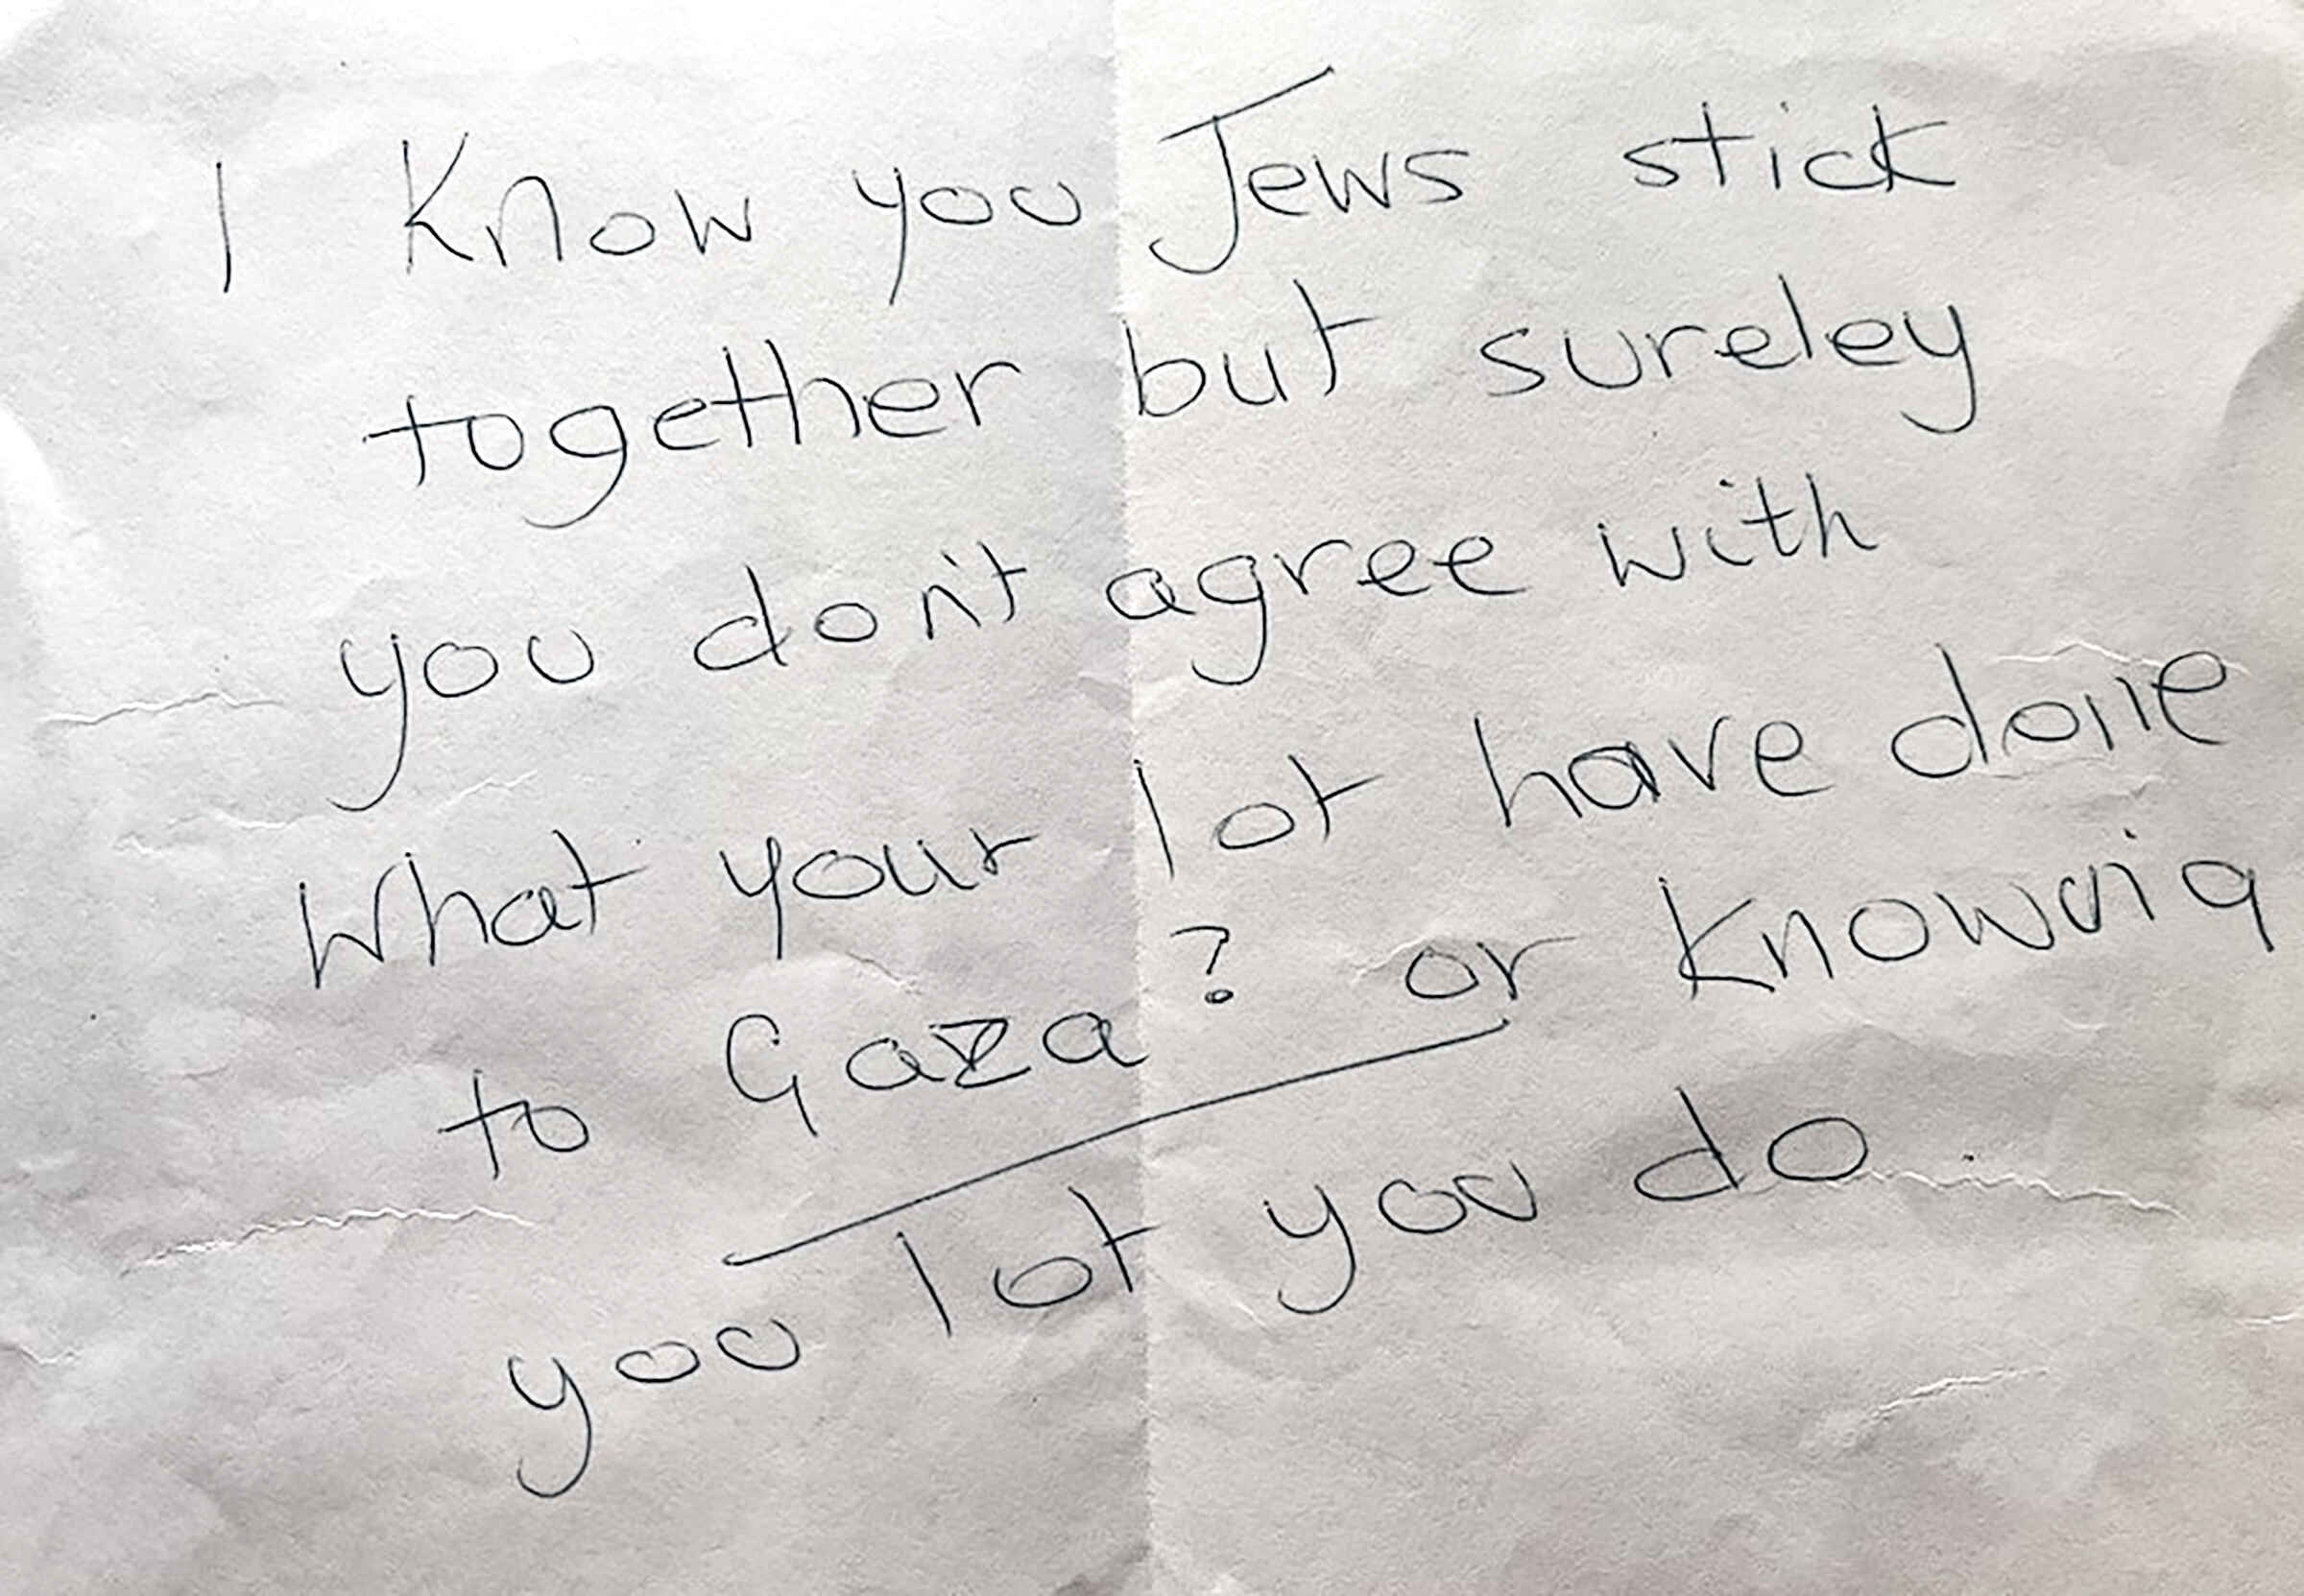 I Know you Jews stick
together but sureley
you don't agree with
What your lot have done
to Gaza? or Knowing
you lot you do.